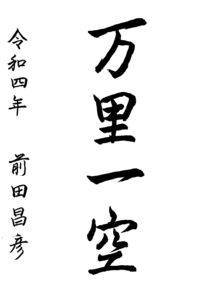 万里一空
令和四年 前田昌彦